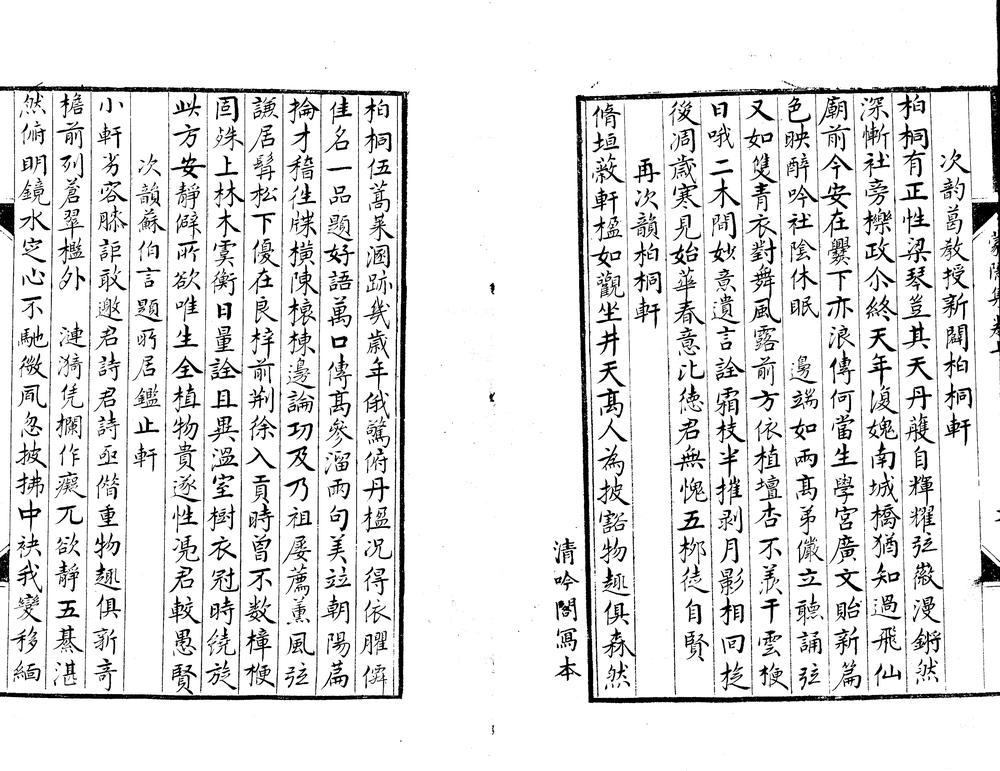 次韵葛教授新闢柏桐軒
柏桐有正性梁琴豈其天丹雘自輝耀弦徽漫鏘然
深慚社旁櫟政尒終天年復媿南城橋猶知過飛仙
廟前今安在爨下亦浪傳何當生學宮廣文貽新篇
色映醉吟社陰休眠　邊端如兩高弟儼立聽誦弦
又如雙青衣對舞風露前方依植壇杏不羨干雲梗
日哦二木間妙意遺言詮霜枝半摧剥月影相回旋
後凋歲寒見始華春意比德君無愧五栁徒自賢
再次韻柏桐軒
脩垣蔽軒楹如觀坐井天高人為披豁物趣俱森然
清吟閣寫本
柏桐伍蒿萊溷跡幾歲年俄驚俯丹楹況得依臞僊
佳名一品題好語萬口傳高參溜雨句美竝朝陽篇
掄才稽徃牒横陳榱棟邊論功及乃祖屡薦薫風弦
謙居髯松下優在良梓前荆徐入貢時曾不数樟梗
固殊上林木虞衡日量詮且異温室樹衣冠時繞旋
此方安靜僻所欲唯生全植物貴遂性凴君較愚賢
次韻蘇伯言題所居鑑止軒
小軒劣容膝詎敢邀君詩君詩亟偕重物趣俱新奇
檐前列蒼翠檻外　漣漪凭欄作癡兀欲靜五綦湛
然俯明鏡水定心不馳微風忽披拂中袂我變移緬